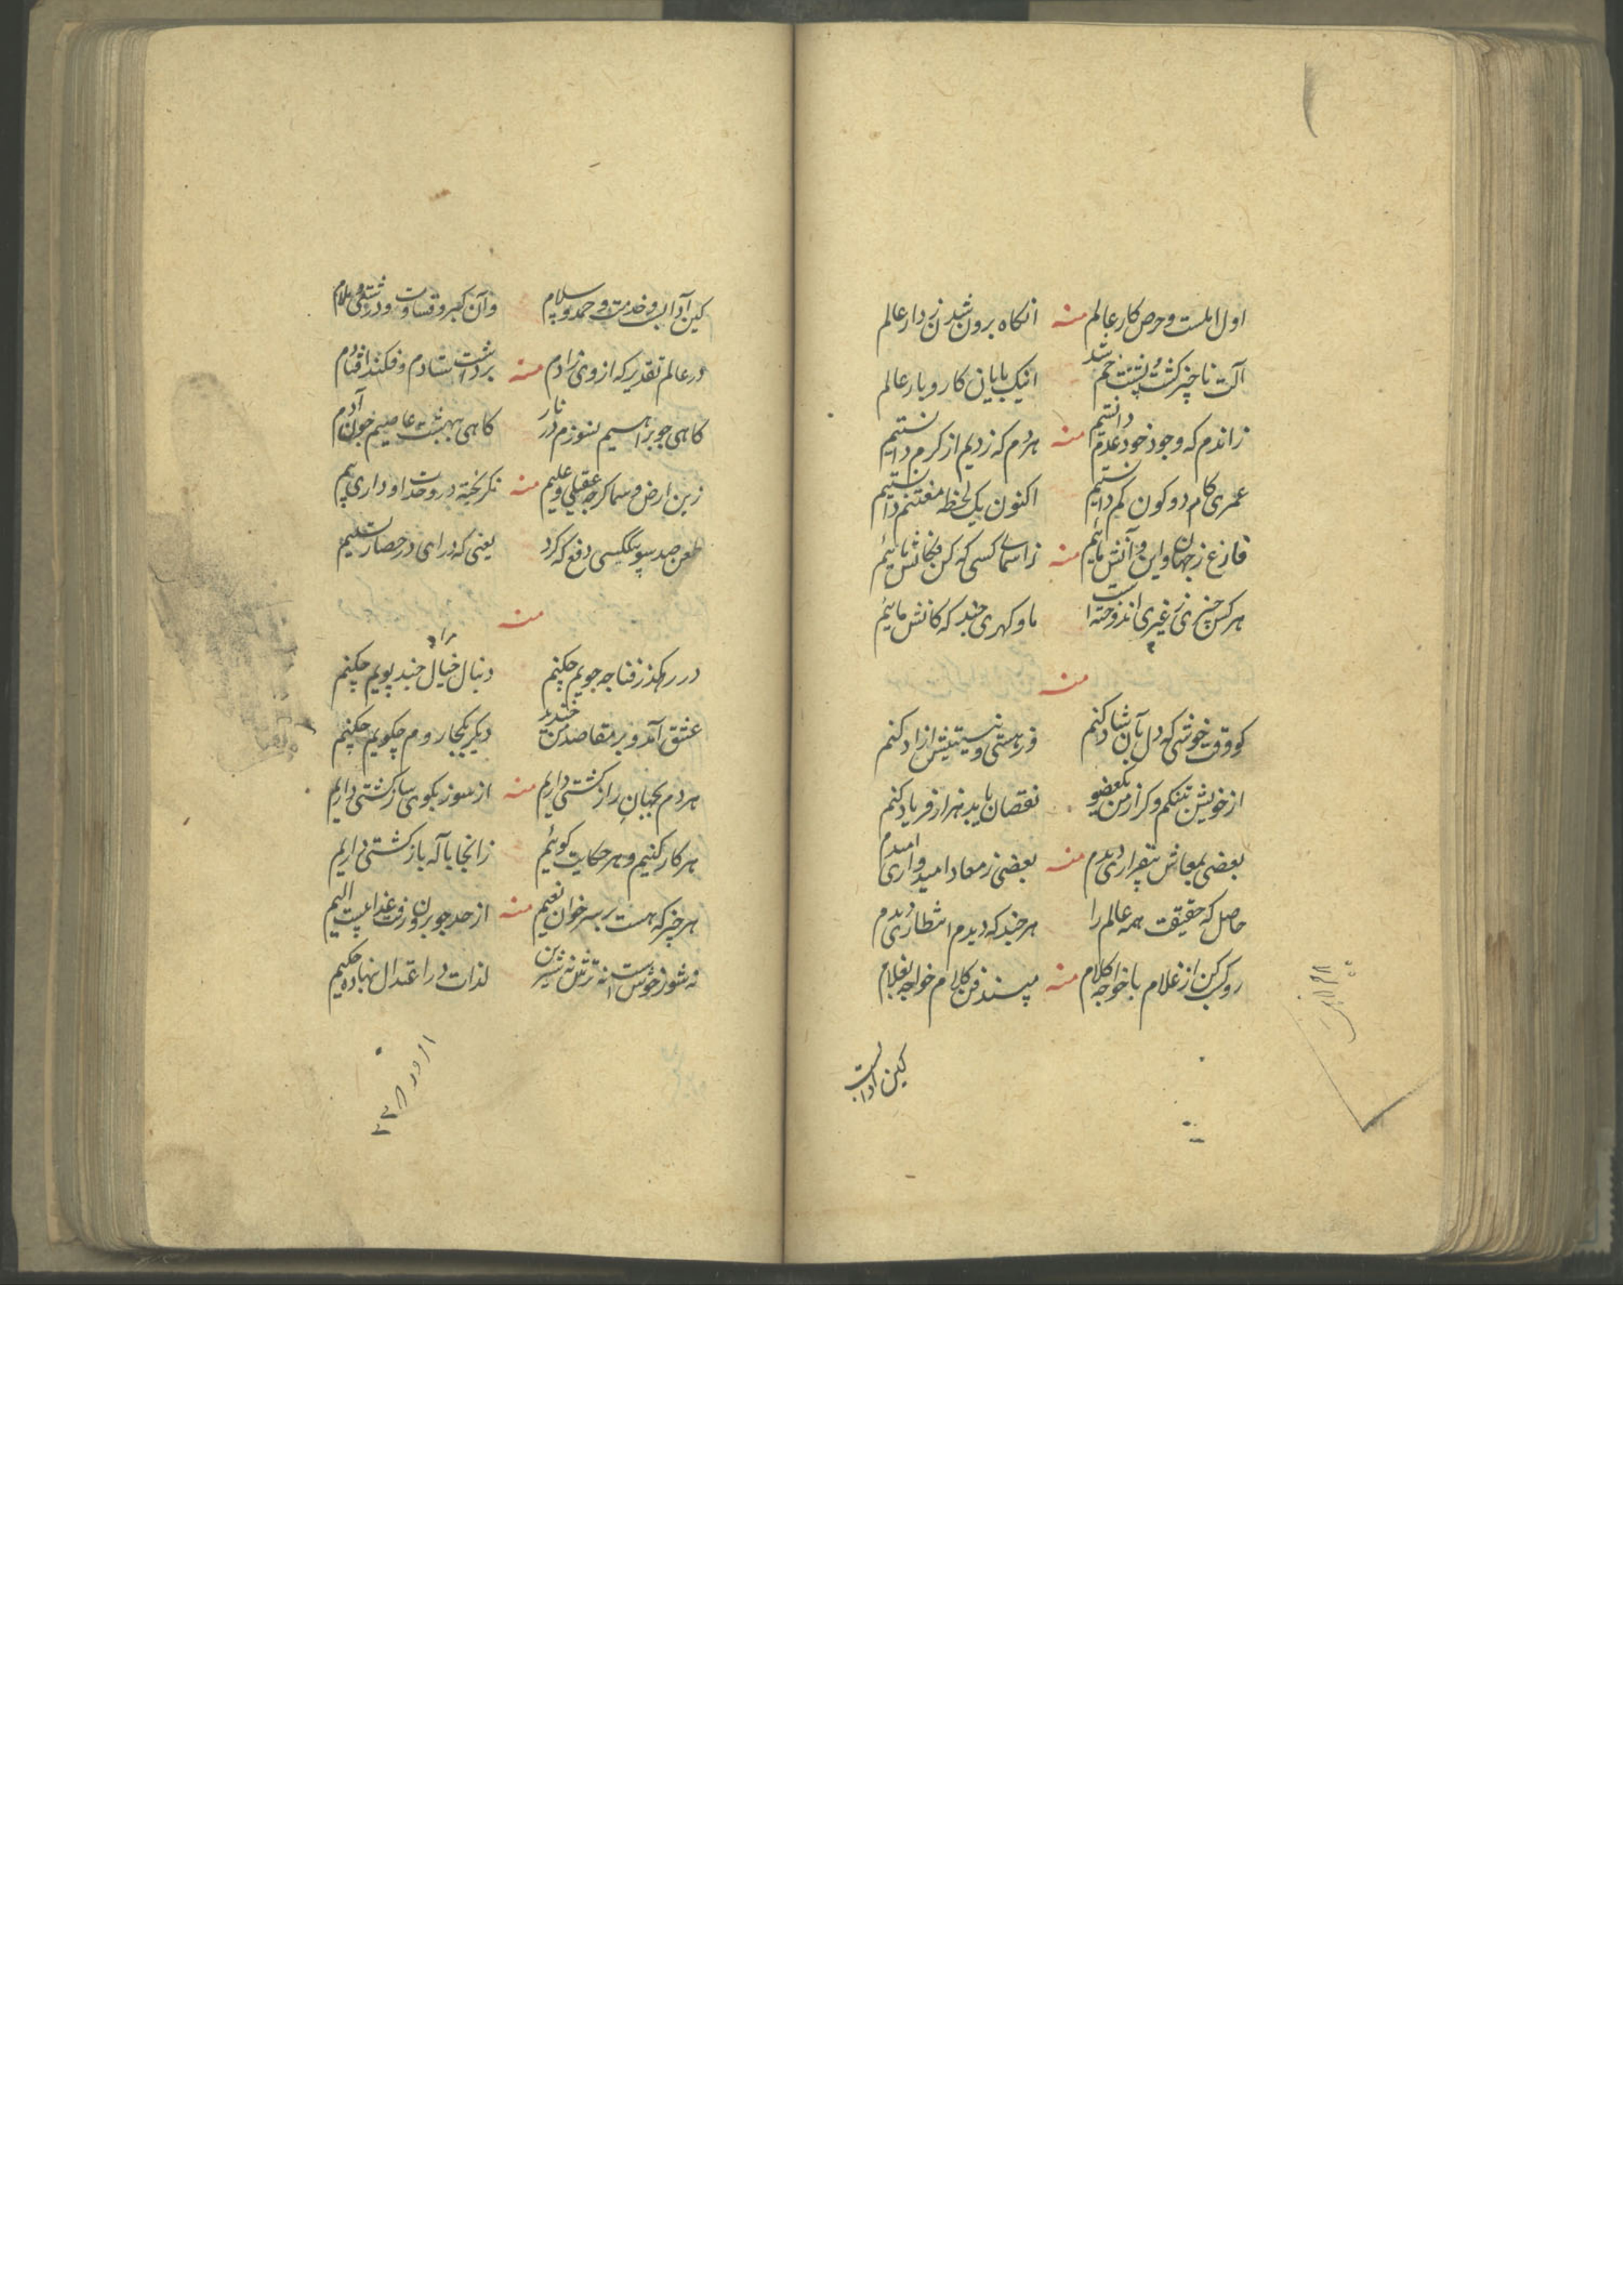 اول املست و حرص کار عالم منه انکاه برون شدن ز دار عالم
آلت ناچیز کشت و پشتت خم شد اینک پایان کار و بار عالم
زاندم که وجود خود عدم دانستیم منه هر دم که زدیم از کرم دانستیم
عمری کام دو کون کم دانستیم اکنون یک لحظه مغتنم دانستیم
فارغ ز جهان و این و آنش مائیم منه کسی که کن فکانش مائیم
هر کس چیزی ز غیری اندوخته است ما و کهری چند که کانش مائیم
منه
کو وقت خوشی که دل بآن شاد کنم وز هستی و نیستیش ازاد کنم
از خویش تنکم و کر از من یک عضو نقصان یابد هزار فریاد کنم
بعضی بمعاش بیقراری دیدم منه بعضی ز معاد امیدواری دیدم
حاصل که حقیقت همه عالم را هر چند که دیدم انتظاری دیدم
رو کن از غلام با خواجه کلام منه مپسند فن کلام خواجه بغلام
کین آدابست
کین آدابست و خدمت و حمد و سلام وآن کبر و قساوت و درشتی و ملام
در عالم تقدیر که از وی زادم منه برداشت ستادم و فکند افتادم
کاهی چو براهیم نسوزم در نار کاهی ببهشت عاصیم چون آدم
زین ارض و سما کرچه عقیلی و علیم منه نکریخته در وحدت او داری بیم
طعن صد سو بیکسی دفع که کرد یعنی که درای در حصار تسلیم
منه
در رهکذر فنا چه جویم چکنم دنبال خیال چند پویم چکنم
عشق آمد و بر مقاصد من خندید دیکر بکجا روم چکویم چکنم
هر دم بجهان راز کشتی داریم منه از سوز بکوی ساز کشتی داریم
هر کار کنیم و هر حکایت کوئیم زانجا با آنکه باز کشتی داریم
هر چیز که هست بر سر خوان نعیم منه از حد چو برون رفت عذابیست الیم
نه شور خوش است نه ترش نه شیرین لذات در اعتدال نهاده حکیم